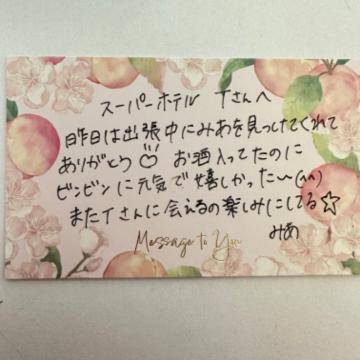 スーパーホテル Tさんへ
昨日は出張中にみあを見つけてくれて
ありがとう♡ お酒入ってたのに
ビンビンに元気で嬉しかった〜(^^)
またTさんに会えるの楽しみにしてる☆
みあ
Message to You